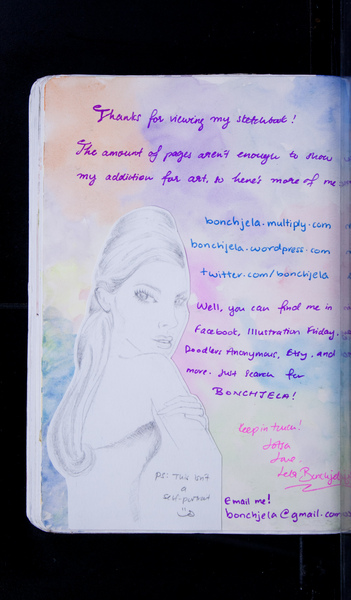 Thanks for viewing my sketchbook!
The amount of pages aren't enough to show
my addiction for art, so here's more of me
bonchjela.multiply.com
bonchjela.wordpress.com
twitter.com/bonchjela
Well, you can find me in
Facebook, Illustration Friday,
Doodlers Anonymous, Etsy, and
more. Just search for
BONCHJELA!
Keep in touch!
Lotsa
Love,
Bonchjela
PS: This isn't
a
self-portrait
Email me!
bonchjela@gmail.com